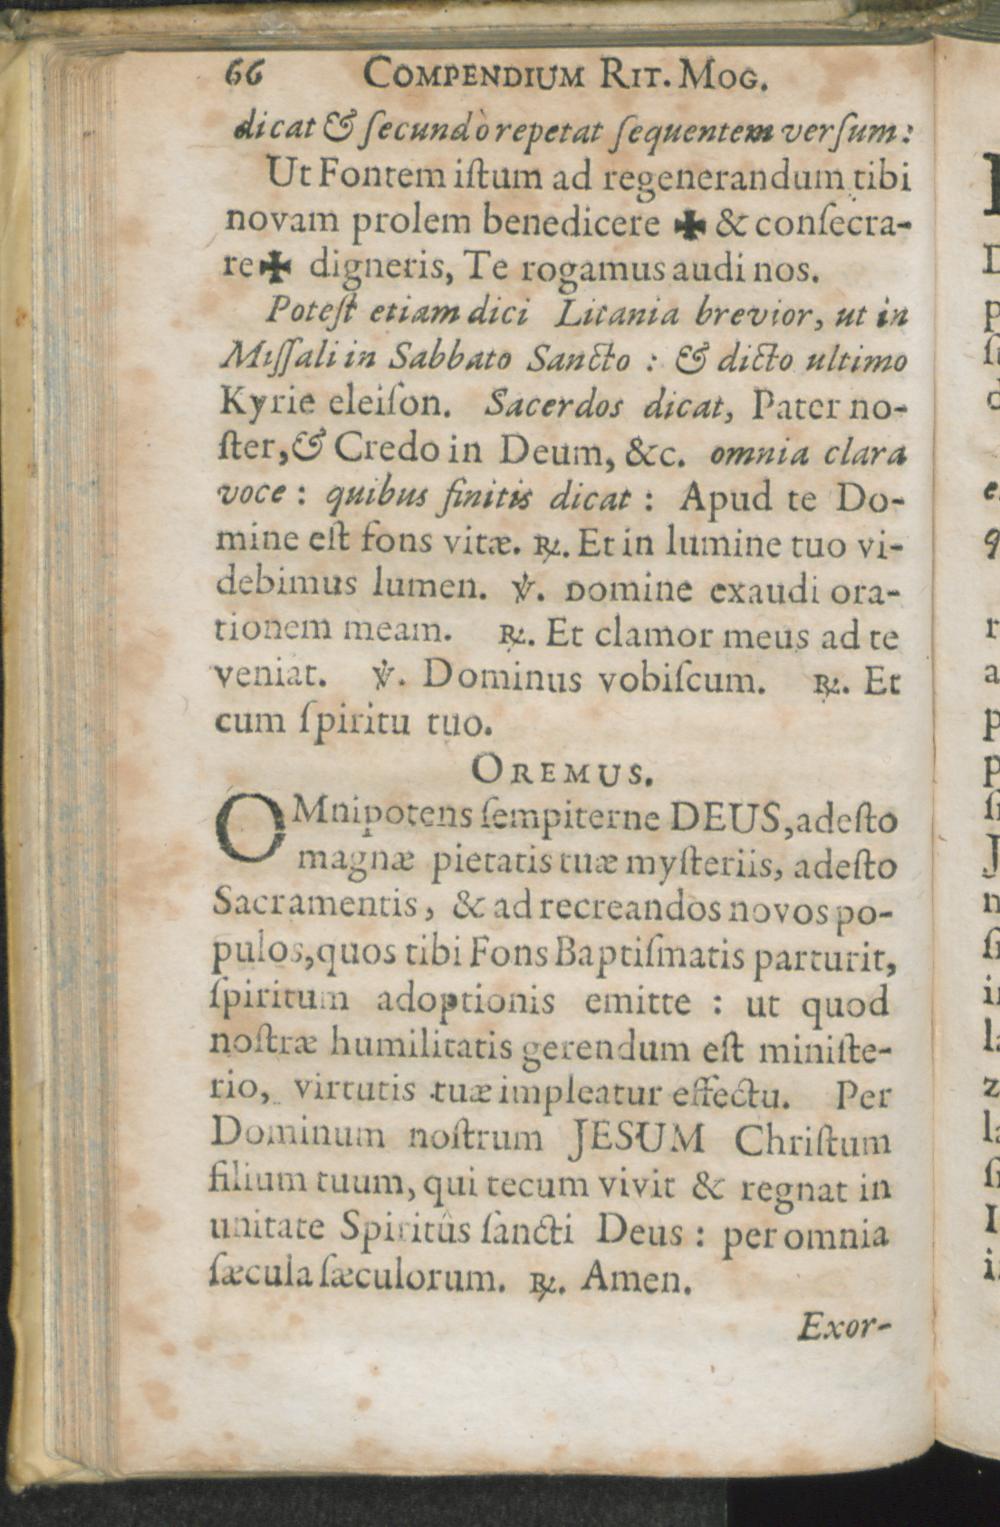 66 COMPENDIUM RIT. MOG.
dicat & ſecundò repetat ſequentem verſum:
Ut Fontem iſtum ad regenerandum tibi
novam prolem benedicere ✠ & conſecra-
re ✠ digneris, Te rogamus audi nos.
Poteſt etiam dici Litania brevior, ut in
Miſſali in Sabbato Sancto : & dicto ultimo
Kyrie eleiſon. Sacerdos dicat, Pater no-
ſter, & Credo in Deum, &c. omnia clara
voce : quibus finitis dicat : Apud te Do-
mine eſt fons vitæ. ℟. Et in lumine tuo vi-
debimus lumen. ℣. Domine exaudi ora-
tionem meam. ℟. Et clamor meus ad te
veniat. ℣. Dominus vobiſcum. ℟. Et
cum ſpiritu tuo.
OREMUS.
OMnipotens ſempiterne DEUS, adeſto
magnæ pietatis tuæ myſteriis, adeſto
Sacramentis, & ad recreandos novos po-
pulos, quos tibi Fons Baptiſmatis parturit,
ſpiritum adoptionis emitte : ut quod
noſtræ humilitatis gerendum eſt miniſte-
rio, virtutis tuæ impleatur effectu. Per
Dominum noſtrum JESUM Chriſtum
filium tuum, qui tecum vivit & regnat in
unitate Spiritûs ſancti Deus : per omnia
ſæcula ſæculorum. ℟. Amen.
Exor-